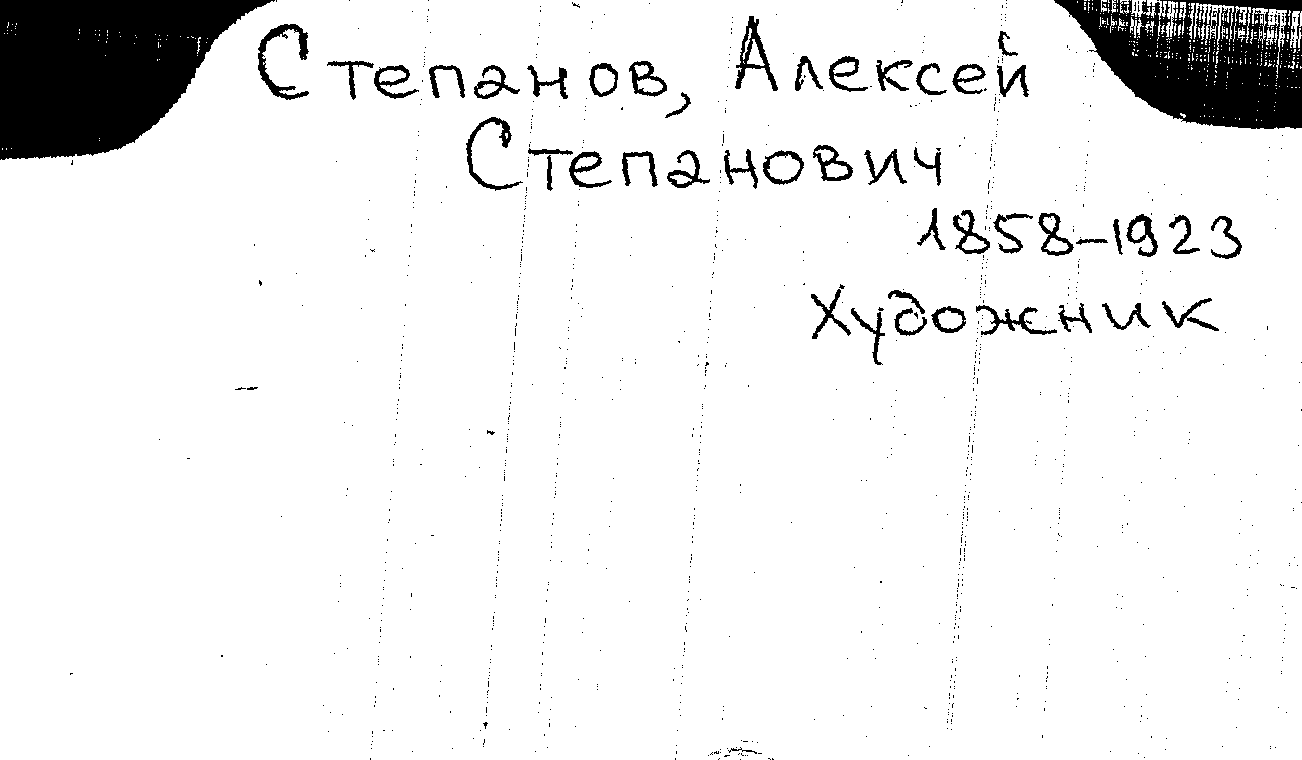 Степанов, Алексей
Степанович
1858-1923
Художник